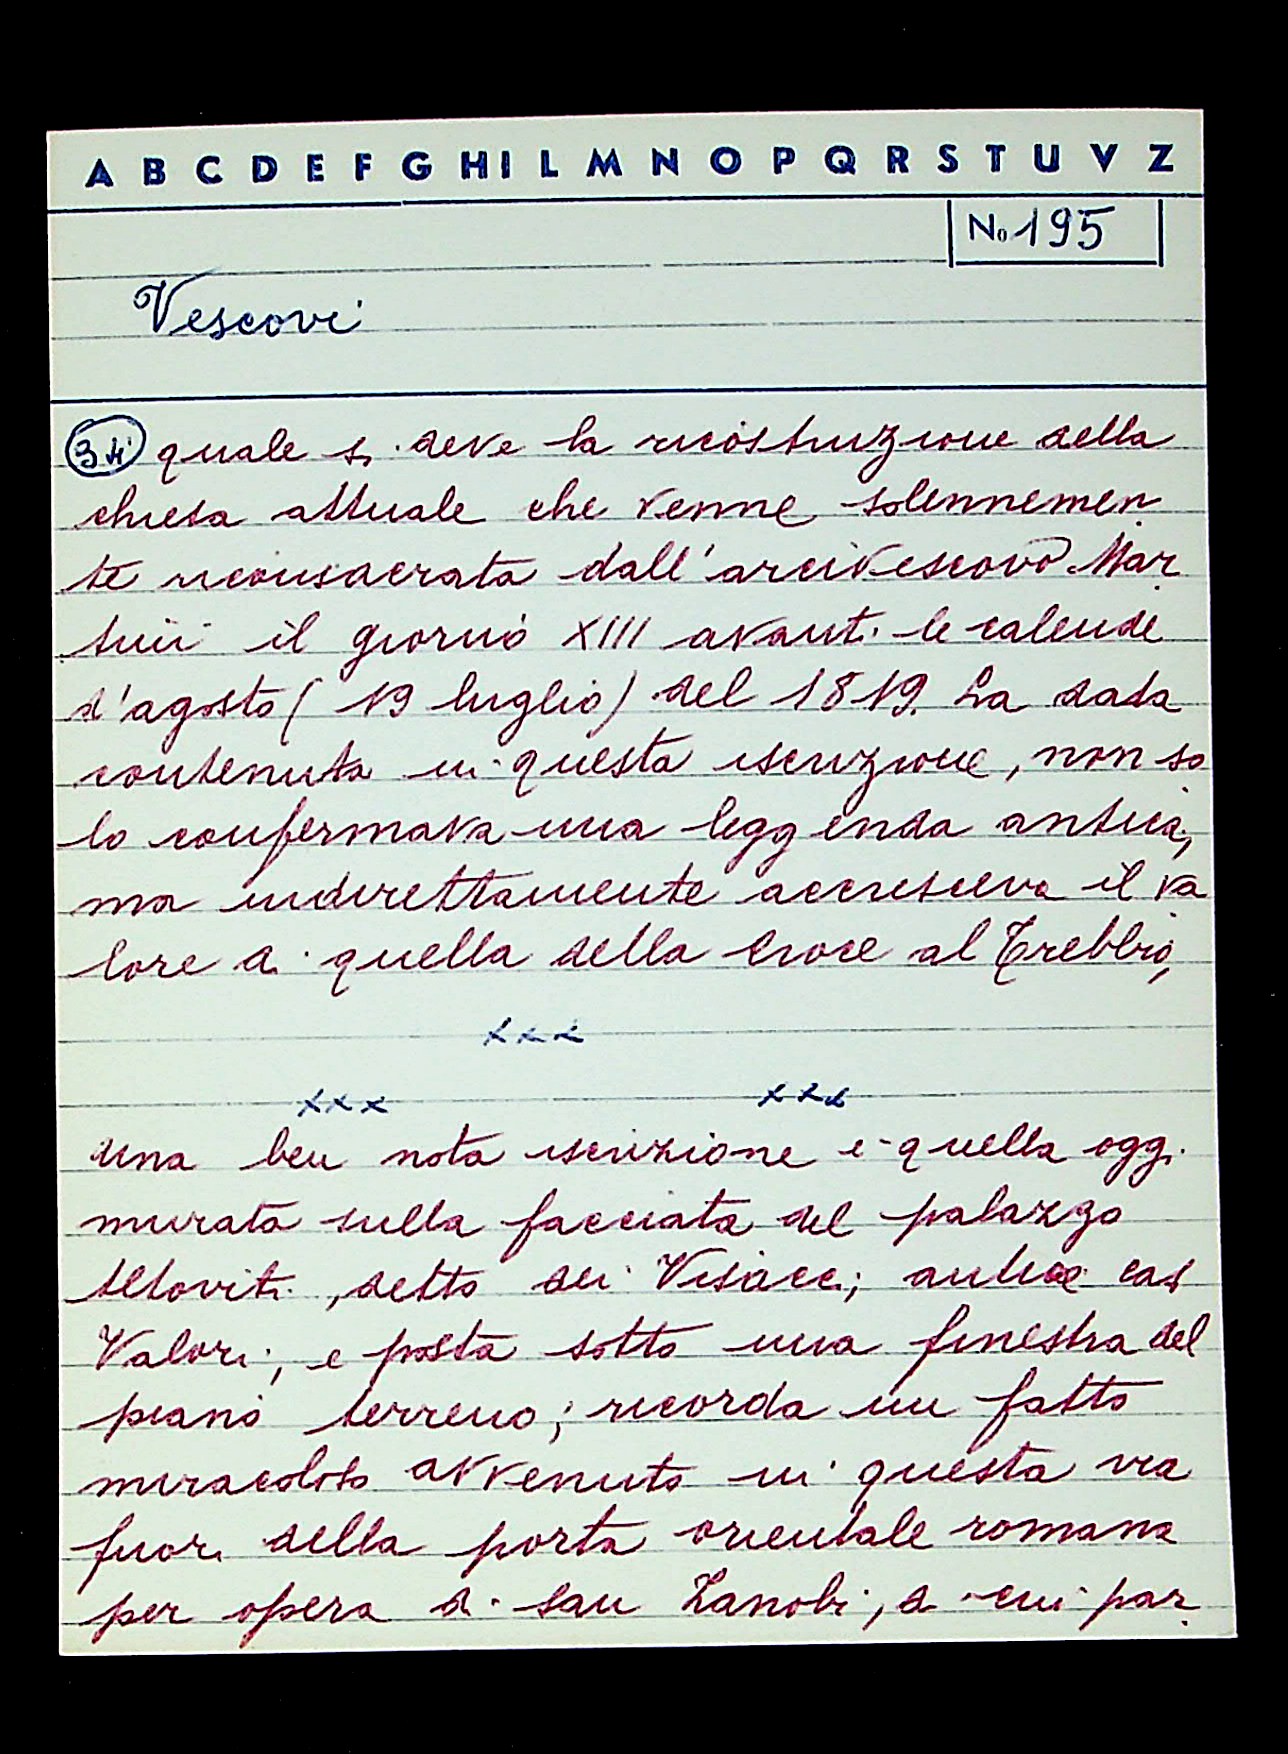 A B C D E F G H I L M N O P Q R S T U V Z
No 195
Vescovi
quale si deve la ricostruzione della
chiesa attuale che venne solennemen
te riconsacrata dall'arcivescovo Mar
tini il giorno XIII avanti le calende
d'agosto ( 19 luglio) del 1819. La data
contenuta in questa iscrizione, non so
lo confermava una leggenda antica,
ma indirettamente accresceva il va
lore a quella della Croce al Trebbio,
x x x
x x x x x x
una ben nota iscrizione e quella oggi
murata sulla facciata del palazzo
Altoviti, detto dei Visacci; antiche case
Valori; e posta sotto una finestra del
piano terreno; ricorda un fatto
miracoloso avvenuto in questa via
fuori della porta orientale romana
per opera di san Zanobi, a cui par